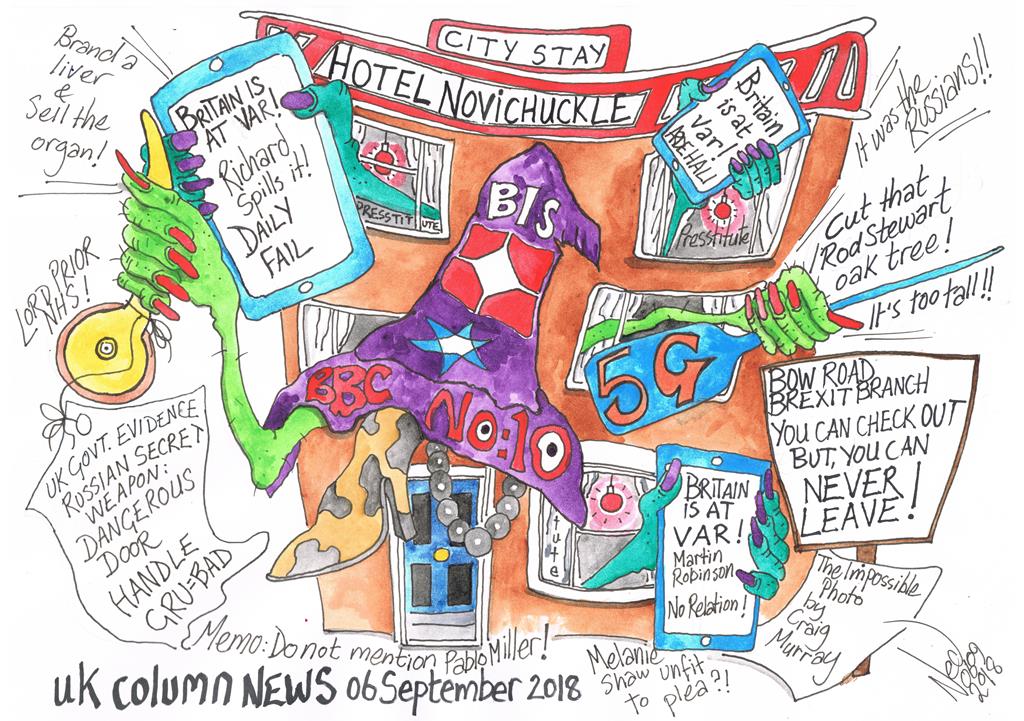 Brand a
liver
&
Sell the
organ!
CITY STAY
HOTEL NOVICHUCKLE
BRITAIN IS
AT VAR!
Richard
Spills it!
DAILY
FAIL
PRESSTITUTE
BIS
Britain
is at
Var!
Presstitute
It was the
Russians!!
Cut that
Rod Stewart
oak tree!
It's too tall!!
LORD PRIOR
NHS!
5G
BBC
NO:10
UK GOVT. EVIDENCE
RUSSIAN SECRET
WEAPON:
DANGEROUS
DOOR
HANDLE
GRU=BAD
BOW ROAD
BREXIT BRANCH
YOU CAN CHECK OUT
BUT, YOU CAN
NEVER
LEAVE!
tute
BRITAIN
IS AT
VAR!
Martin
Robinson
No Relation!
The Impossible
Photo
by
Craig
Murray
Memo: Do not mention Pablo Miller!
Melanie
Shaw unfit
to plea?!
UK COLUMN NEWS 06 September 2018
2018